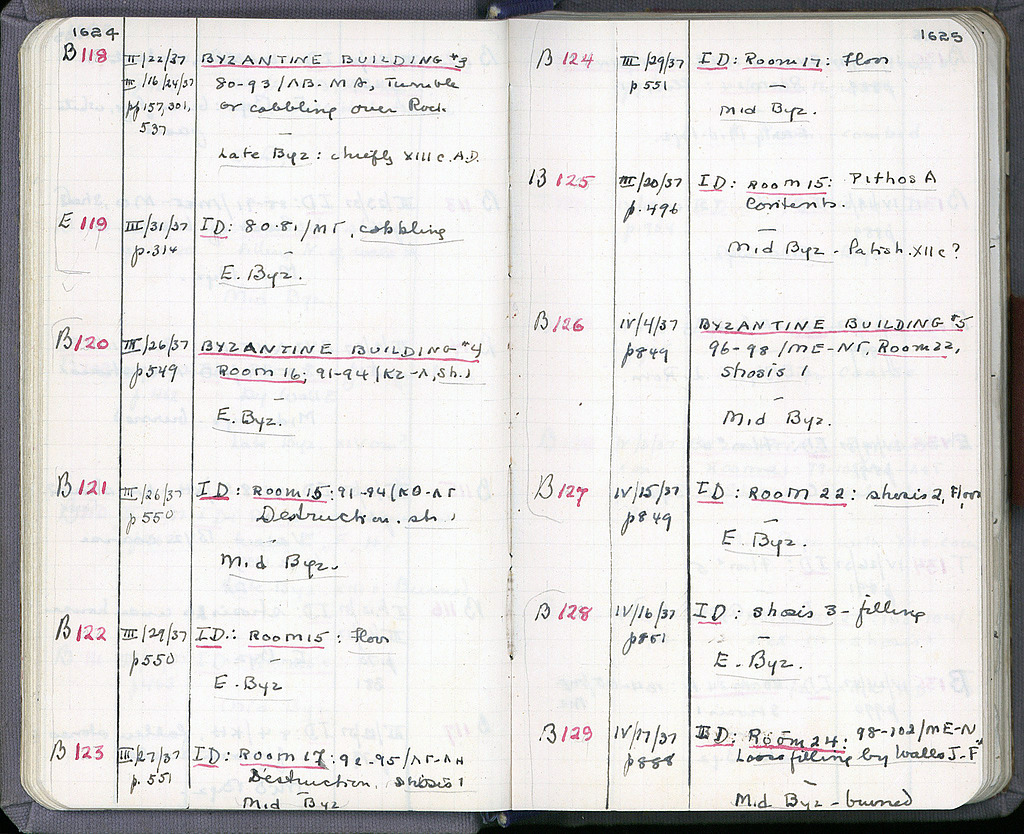 1624
B 118 II/22/37 BYZANTINE BUILDING #3
III/16/24/37 80-93/ΛB-MA, Tumble
pp 157, 301, or cobbling over Rock.
537
—
Late Byz: chiefly XIII c. A.D.
E 119 III/31/37 ID: 80-81/MΓ, cobbling
p. 314
—
E. Byz.
B 120 III/26/37 BYZANTINE BUILDING #4
p 549 Room 16; 91-94/KZ-Λ, sh. 1
—
E. Byz.
B 121 III/26/37 ID: Room 15: 91-94/KΘ-ΛΓ
p 550 Destruction. sh. 1
—
Mid Byz.
B 122 III/29/37 ID.: Room 15: Floor
p 550
—
E. Byz
B 123 III/27/37 ID: Room 17: 92-95/ΛΓ-ΛΗ
p. 551 Destruction, shosis 1
Mid Byz
1625
B 124 III/29/37 ID: Room 17: Floor
p 551
—
Mid Byz.
B 125 III/20/37 ID: Room 15: Pithos A
p. 496 Contents.
—
Mid Byz - Late XII c?
B 126 IV/4/37 BYZANTINE BUILDING #5
p 849 96-98/ME-NΓ, Room 22,
shosis 1
Mid Byz.
B 127 IV/15/37 ID: Room 22: shosis 2, Floor
p 849
—
E. Byz.
B 128 IV/16/37 ID: shosis 3 - filling
p 851
—
E. Byz.
B 129 IV/17/37 ID: Room 24: 98-102/ME-N
p 888 Loose filling by walls J-F
Mid Byz - burned